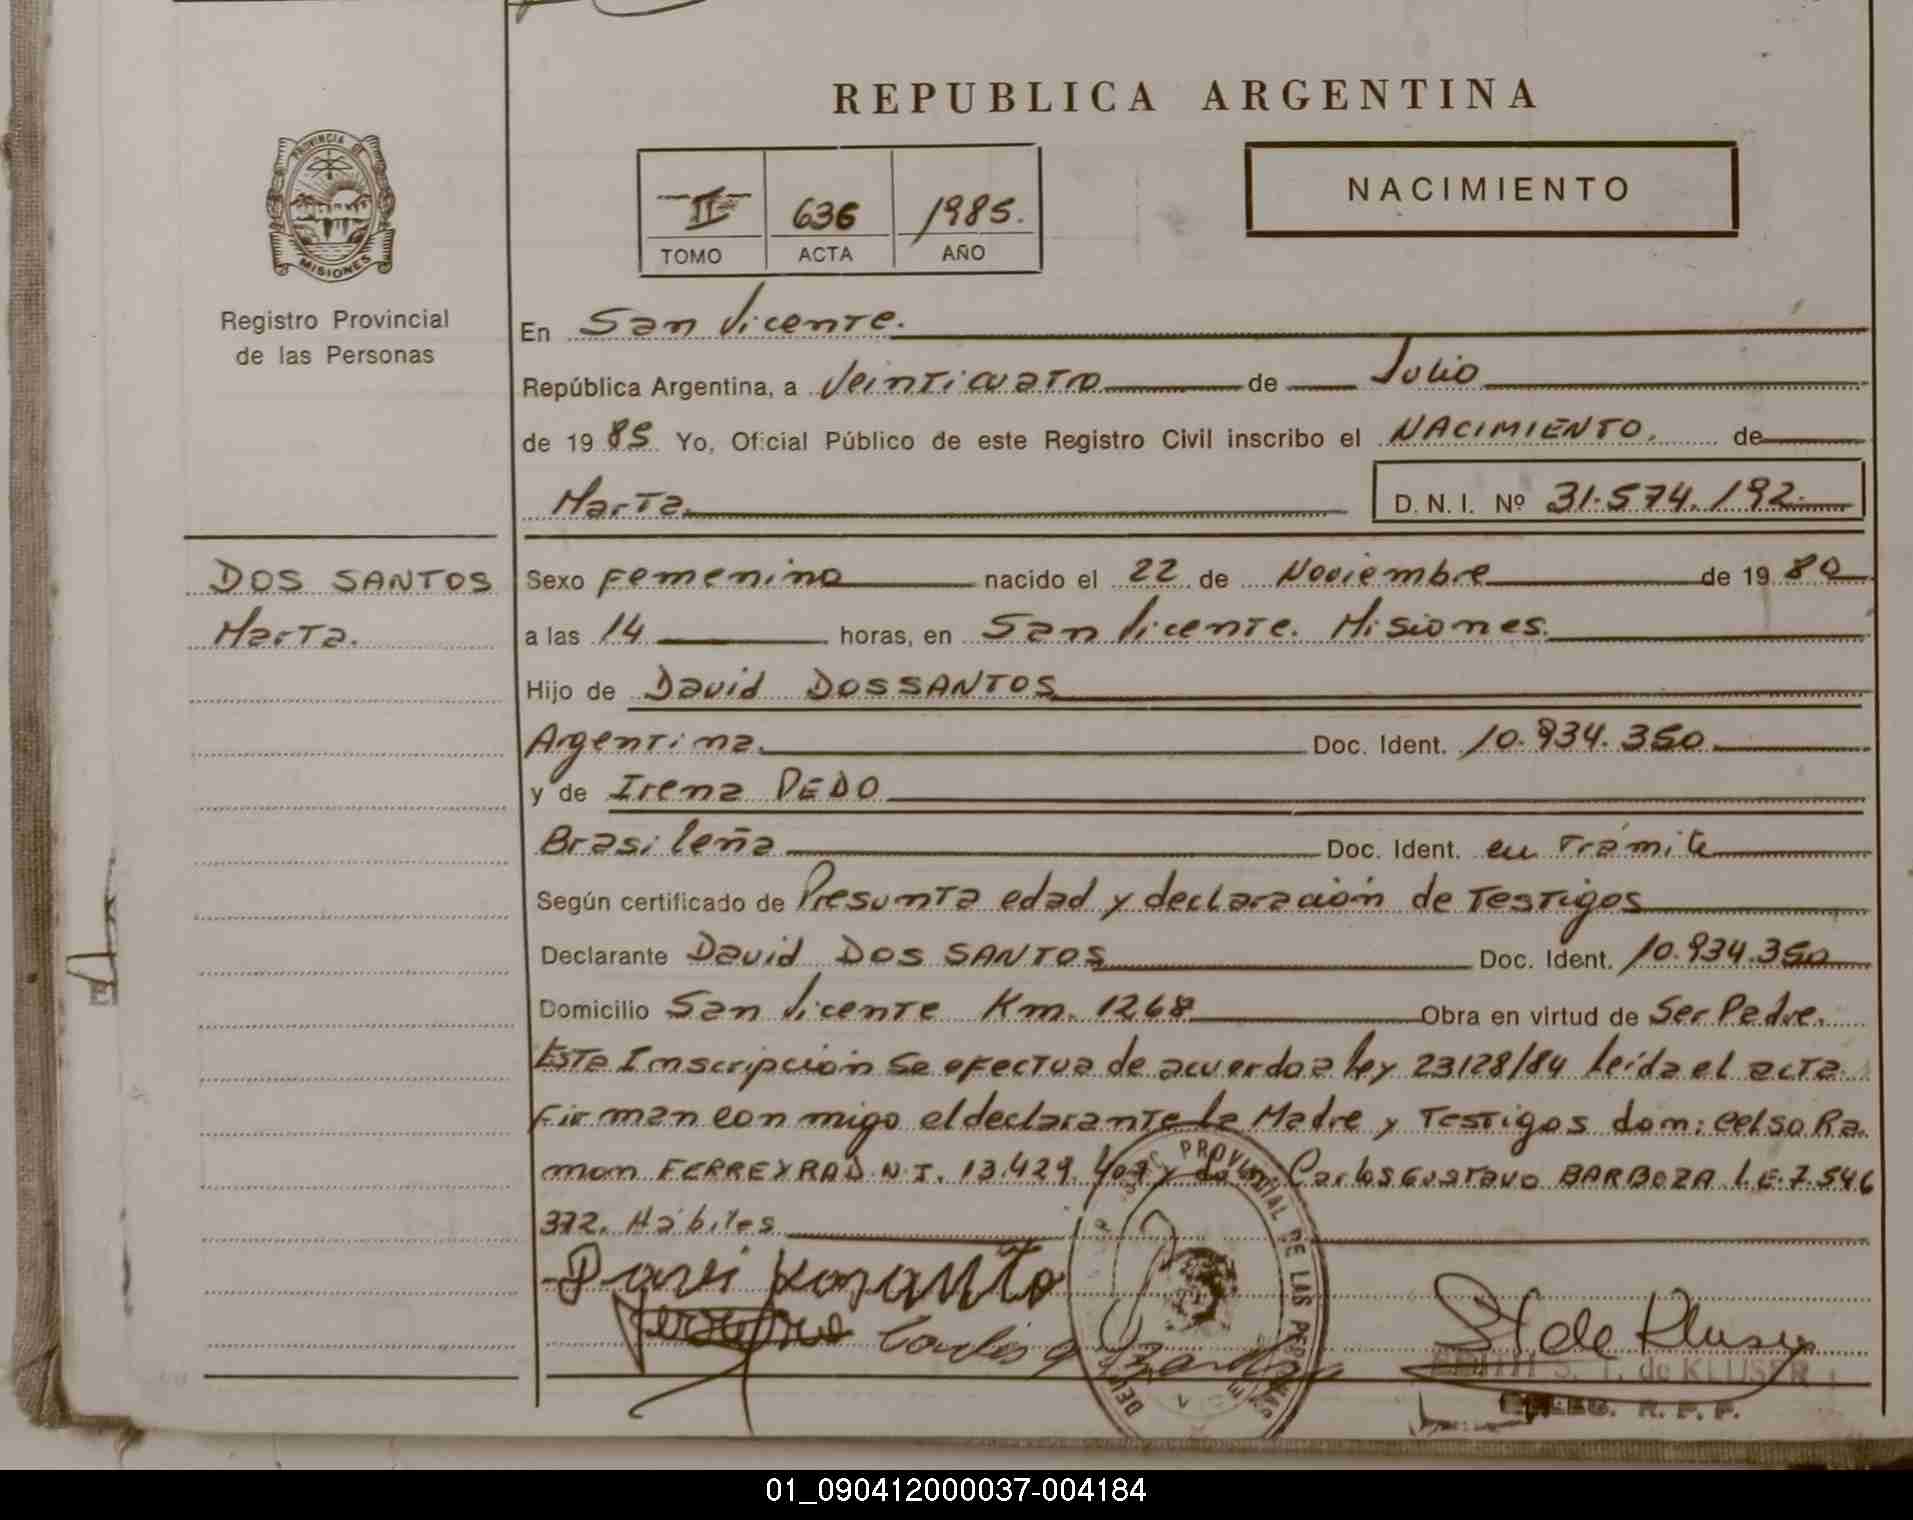 REPUBLICA ARGENTINA
NACIMIENTO
II 636 1985.
TOMO ACTA AÑO
PROVINCIA DE
MISIONES
Registro Provincial
de las Personas
En San Vicente.
República Argentina, a Veinticuatro de Julio
de 1985. Yo, Oficial Público de este Registro Civil inscribo el NACIMIENTO. de
Marta. D. N. I. Nº 31.574.192.
DOS SANTOS
Marta.
Sexo Femenino nacido el 22 de Noviembre de 1980
a las 14 horas, en San Vicente. Misiones.
Hijo de David DOSSANTOS
Argentina. Doc. Ident. 10.934.350
y de Irena DEDO
Brasileña Doc. Ident. en Trámite
Según certificado de Presunta edad y declaración de Testigos
Declarante David DOS SANTOS Doc. Ident. 10.934.350
Domicilio San Vicente Km. 1268 Obra en virtud de Ser Padre.
Esta Inscripción se efectua de acuerdo a ley 23128/84 leída el acta
Firman conmigo el declarante la Madre y Testigos don: Celso Ra.
mon FERREYRA D.N.I. 13.429.407 y don Carlos Gustavo BARBOZA L.E. 7.546
372. Hábiles
PROVINCIAL DE LAS PERSONAS
St de Klusser
EDITH S. T. de KLUSSER
R. P. P.
01_090412000037-004184